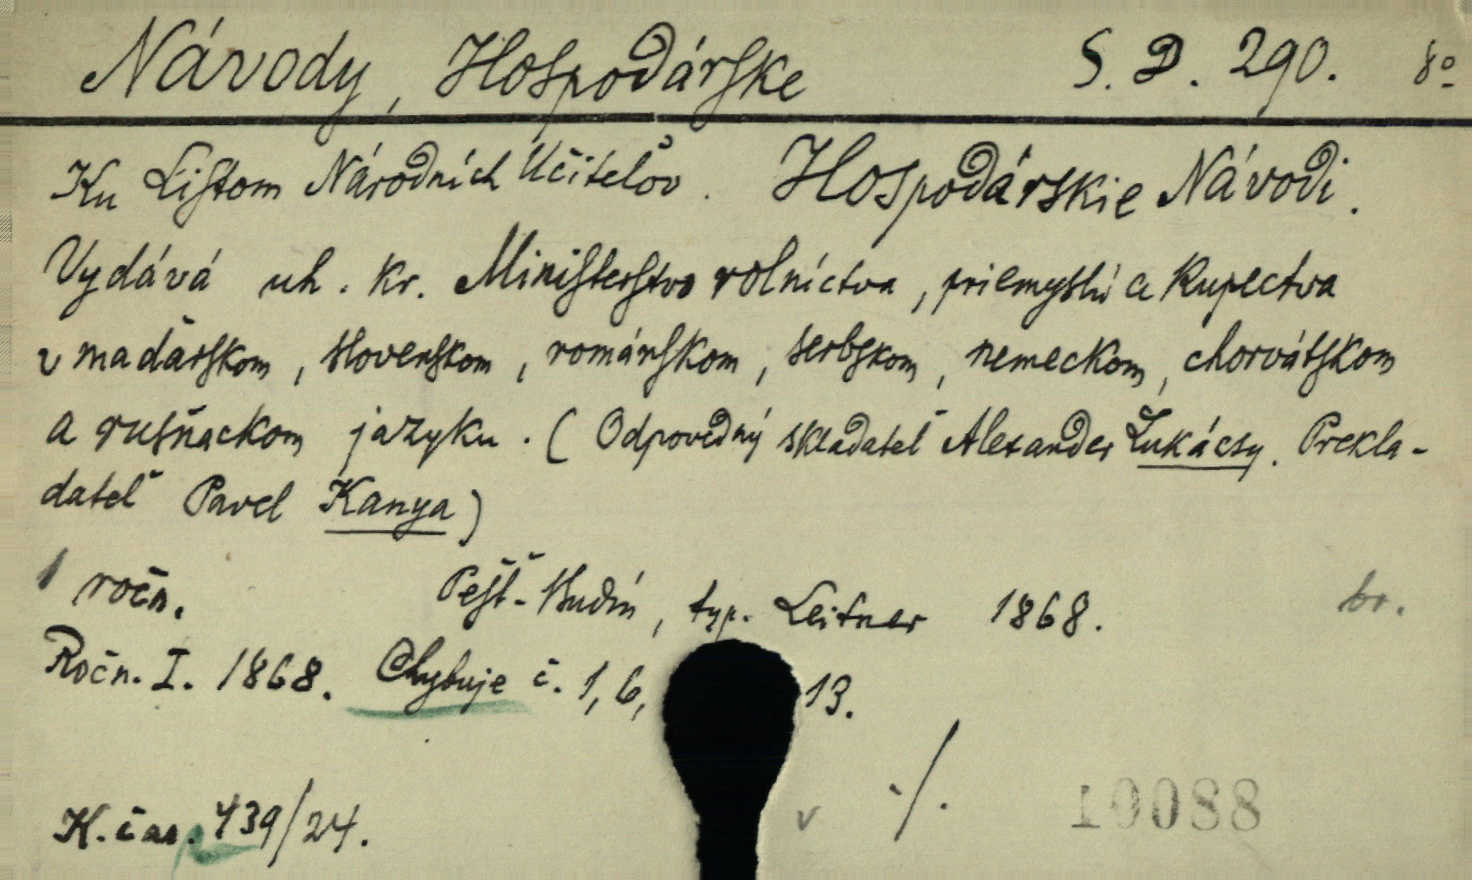 Návody, Hospodárske S. D. 290. 8º
Ku Listom Národních Učiteľov. Hospodárskie Návodi.
Vydává uh. kr. Ministerstvo rolníctva, priemyslu a kupectva
v maďarskom, slovenskom, románskom, serbskom, nemeckom, chorvátskom
a rusňackom jazyku. (Odpovedný skladateľ Alexander Lukácsy. Prekla-
dateľ Pavel Kanya)
1 ročn. Pešť-Budín, typ. Leitner 1868. br.
Ročn. I. 1868. Chybuje č. 1, 6, 13.
v ./.
K. čas. 439/24. 10088